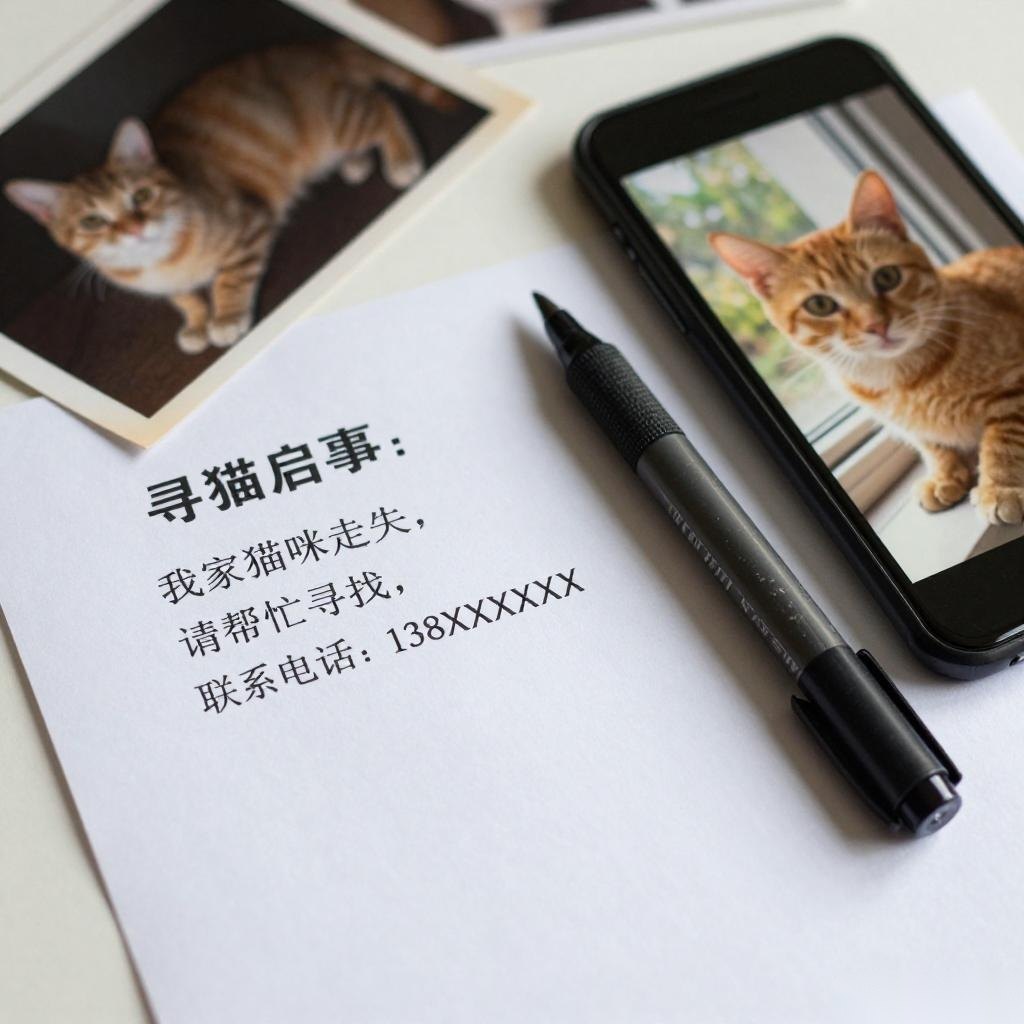 寻猫启事：
我家猫咪走失，
请帮忙寻找，
联系电话：138XXXXXX